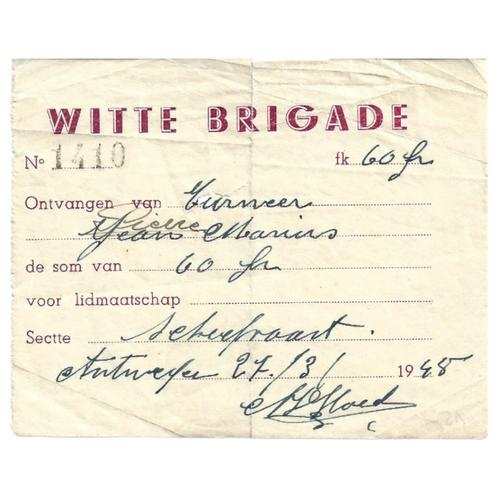 WITTE BRIGADE
No 1410 fk 60 fr
Ontvangen van
Pierre
Jean Marius
de som van 60 fr
voor lidmaatschap
Sectie
Antwerpen 27/3/ 1945